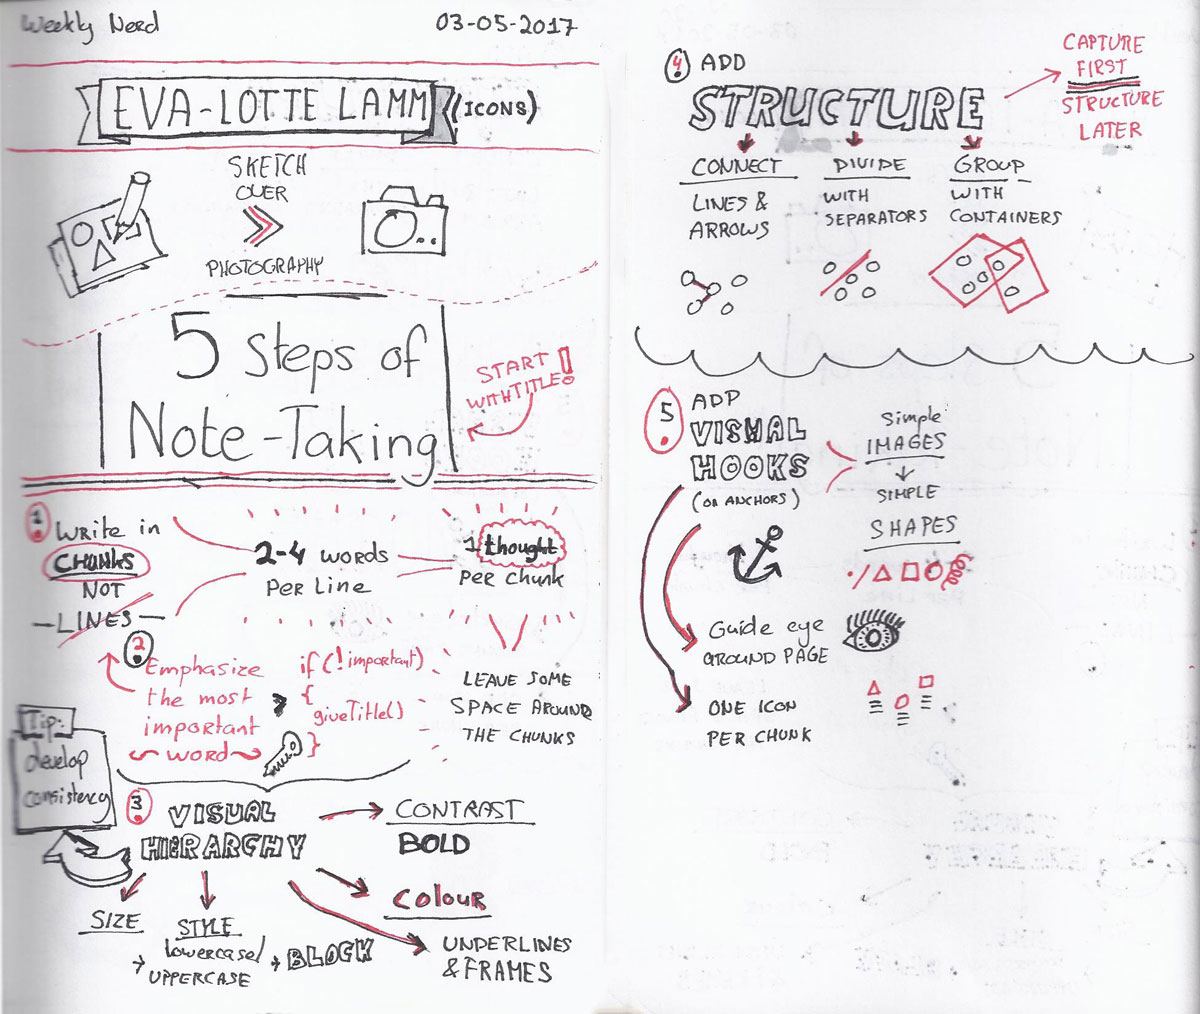 Weekly Nerd
03-05-2017
EVA-LOTTE LAMM
(ICONS)
SKETCH
OVER
PHOTOGRAPHY
5 Steps of
Note-Taking
START
WITH TITLE!
1 Write in
CHUNKS
NOT
LINES
2-4 words
Per Line
1 thought
per chunk
LEAVE SOME
SPACE AROUND
THE CHUNKS
2
Emphasize
the most
important
word
if (!important)
{
giveTitle()
}
Tip:
develop
consistency
3 VISUAL
HIERARCHY
CONTRAST
BOLD
COLOUR
UNDERLINES
& FRAMES
SIZE
STYLE
lowercase/
UPPERCASE
BLOCK
4 ADD
STRUCTURE
CAPTURE
FIRST
STRUCTURE
LATER
CONNECT
LINES &
ARROWS
DIVIDE
WITH
SEPARATORS
GROUP
WITH
CONTAINERS
5 ADD
VISUAL
HOOKS
(OR ANCHORS)
Simple
IMAGES
SIMPLE
SHAPES
Guide eye
AROUND PAGE
ONE ICON
PER CHUNK